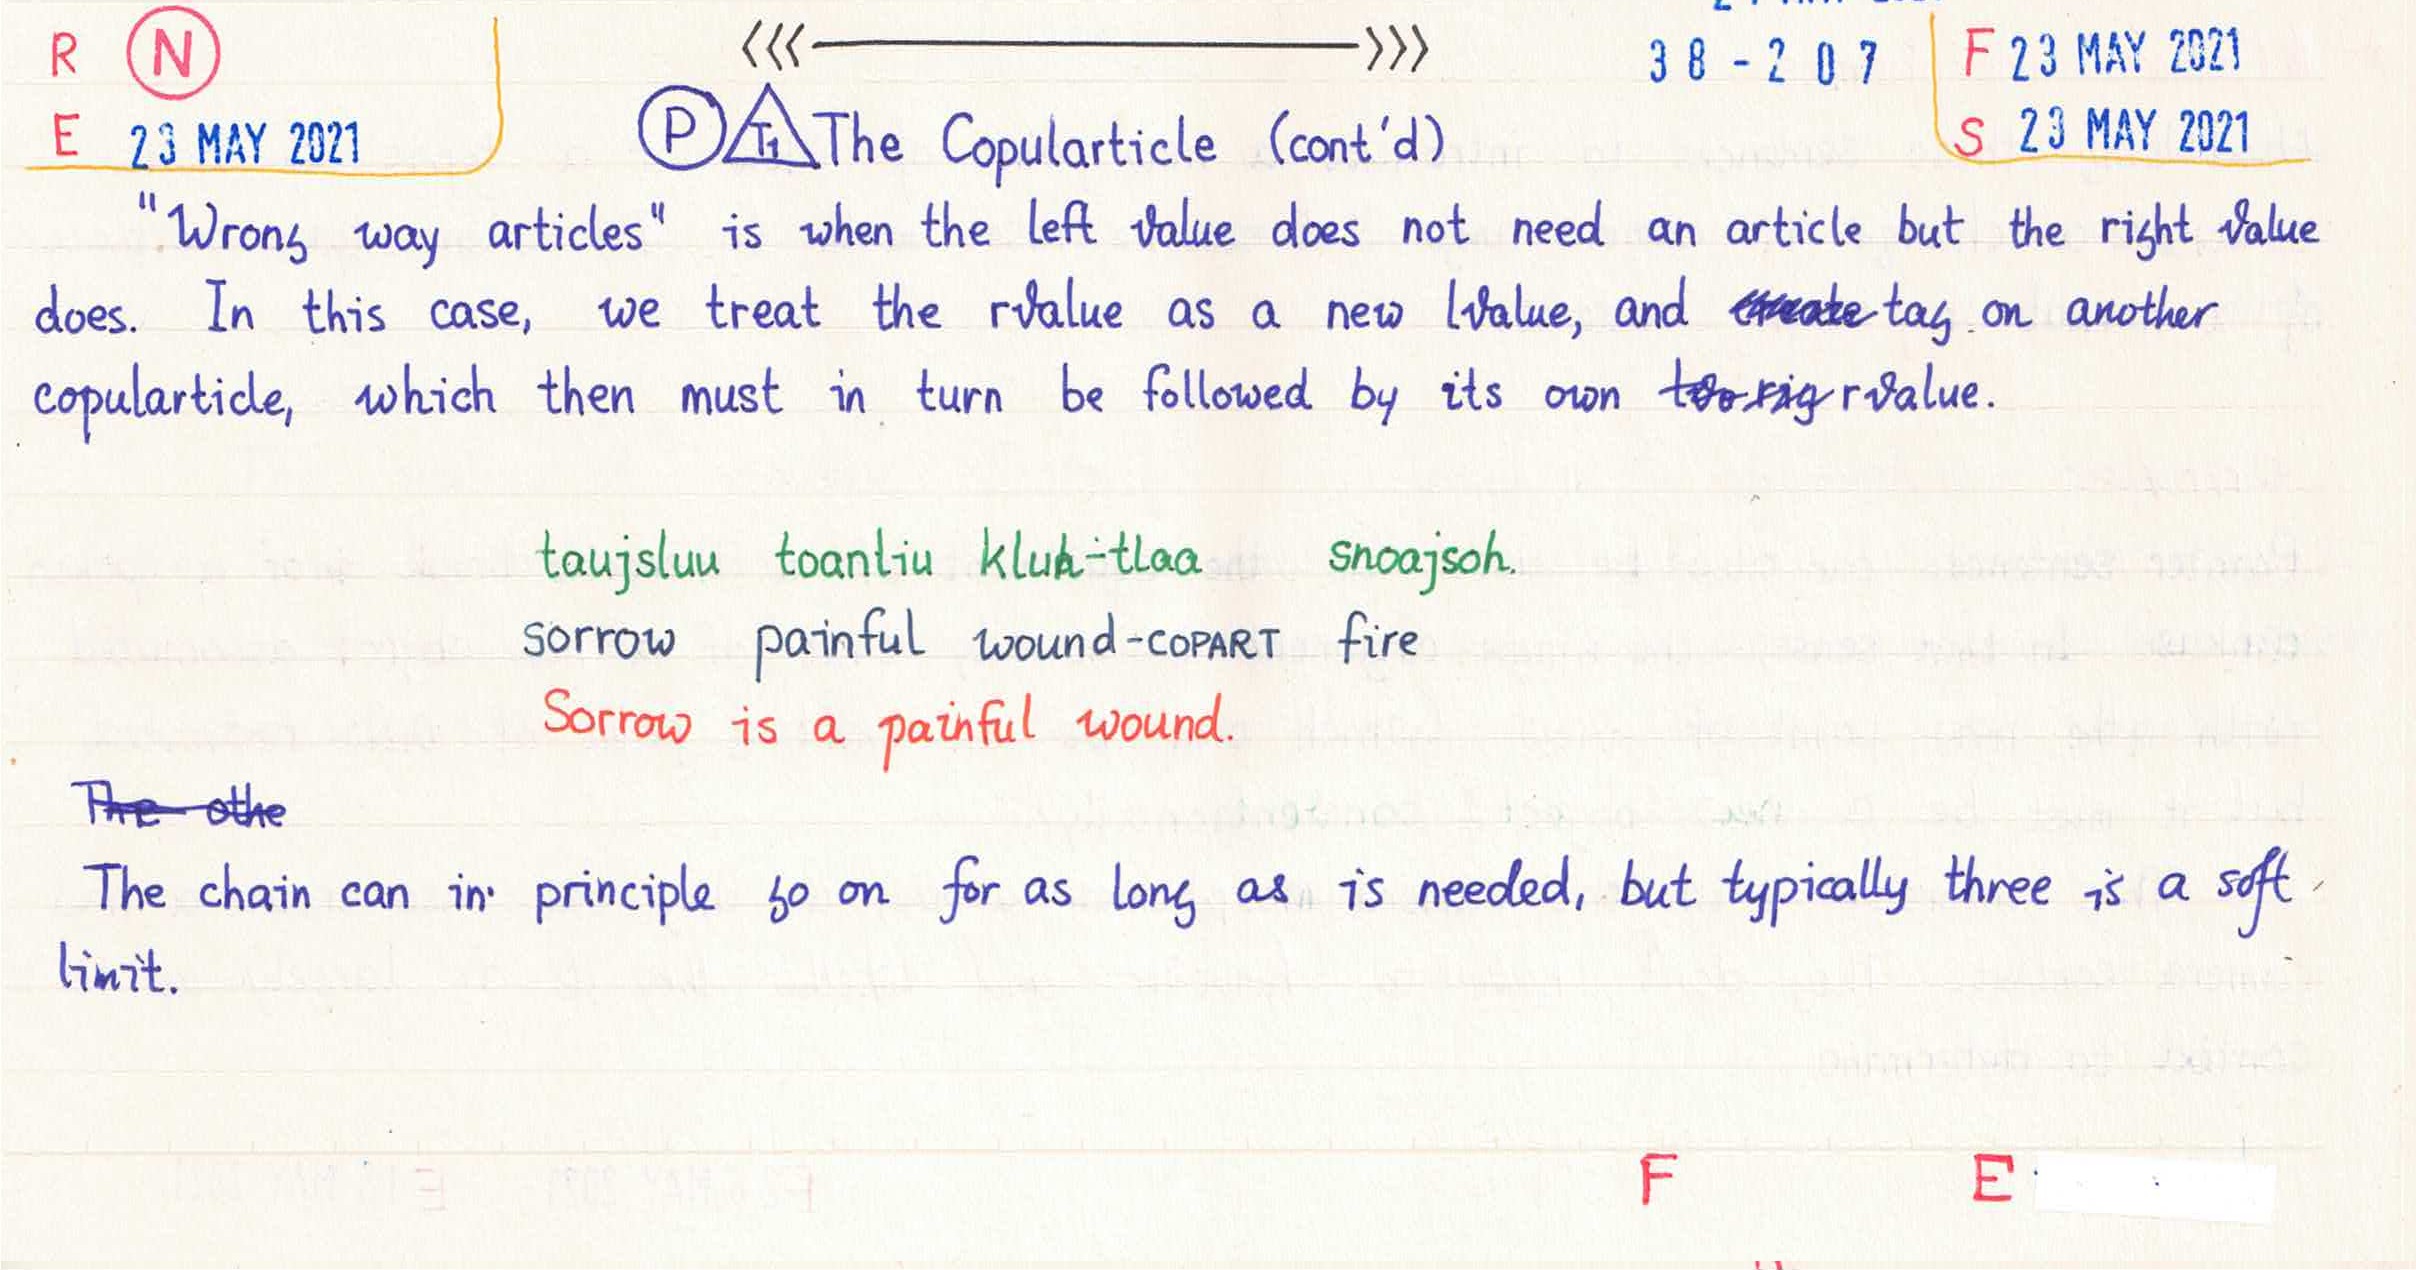 R N
38-207 F 23 MAY 2021
E 23 MAY 2021
P T1 The Copularticle (cont'd)
S 23 MAY 2021
"Wrong way articles" is when the left value does not need an article but the right value
does. In this case, we treat the rvalue as a new lvalue, and tag on another
copularticle, which then must in turn be followed by its own rvalue.
taujsluu toanliu kluh-tlaa snoajsoh.
sorrow painful wound-COPART fire
Sorrow is a painful wound.
The othe
The chain can in principle go on for as long as is needed, but typically three is a soft
limit.
F E